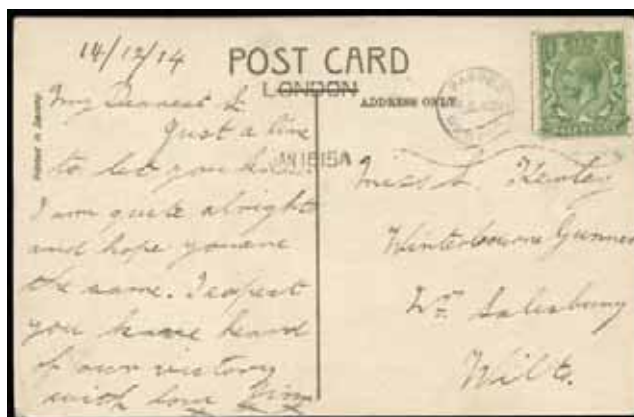 14/12/14
POST CARD
LONDON
ADDRESS ONLY
My Dearest L
Just a line
to let you
I am quite alright
and hope you are
the same. I expect
you have heard
of our victory
with love
JAN1815A
Miss L.
Winterbourne Gunner
Nr. Salisbury
Wilts.